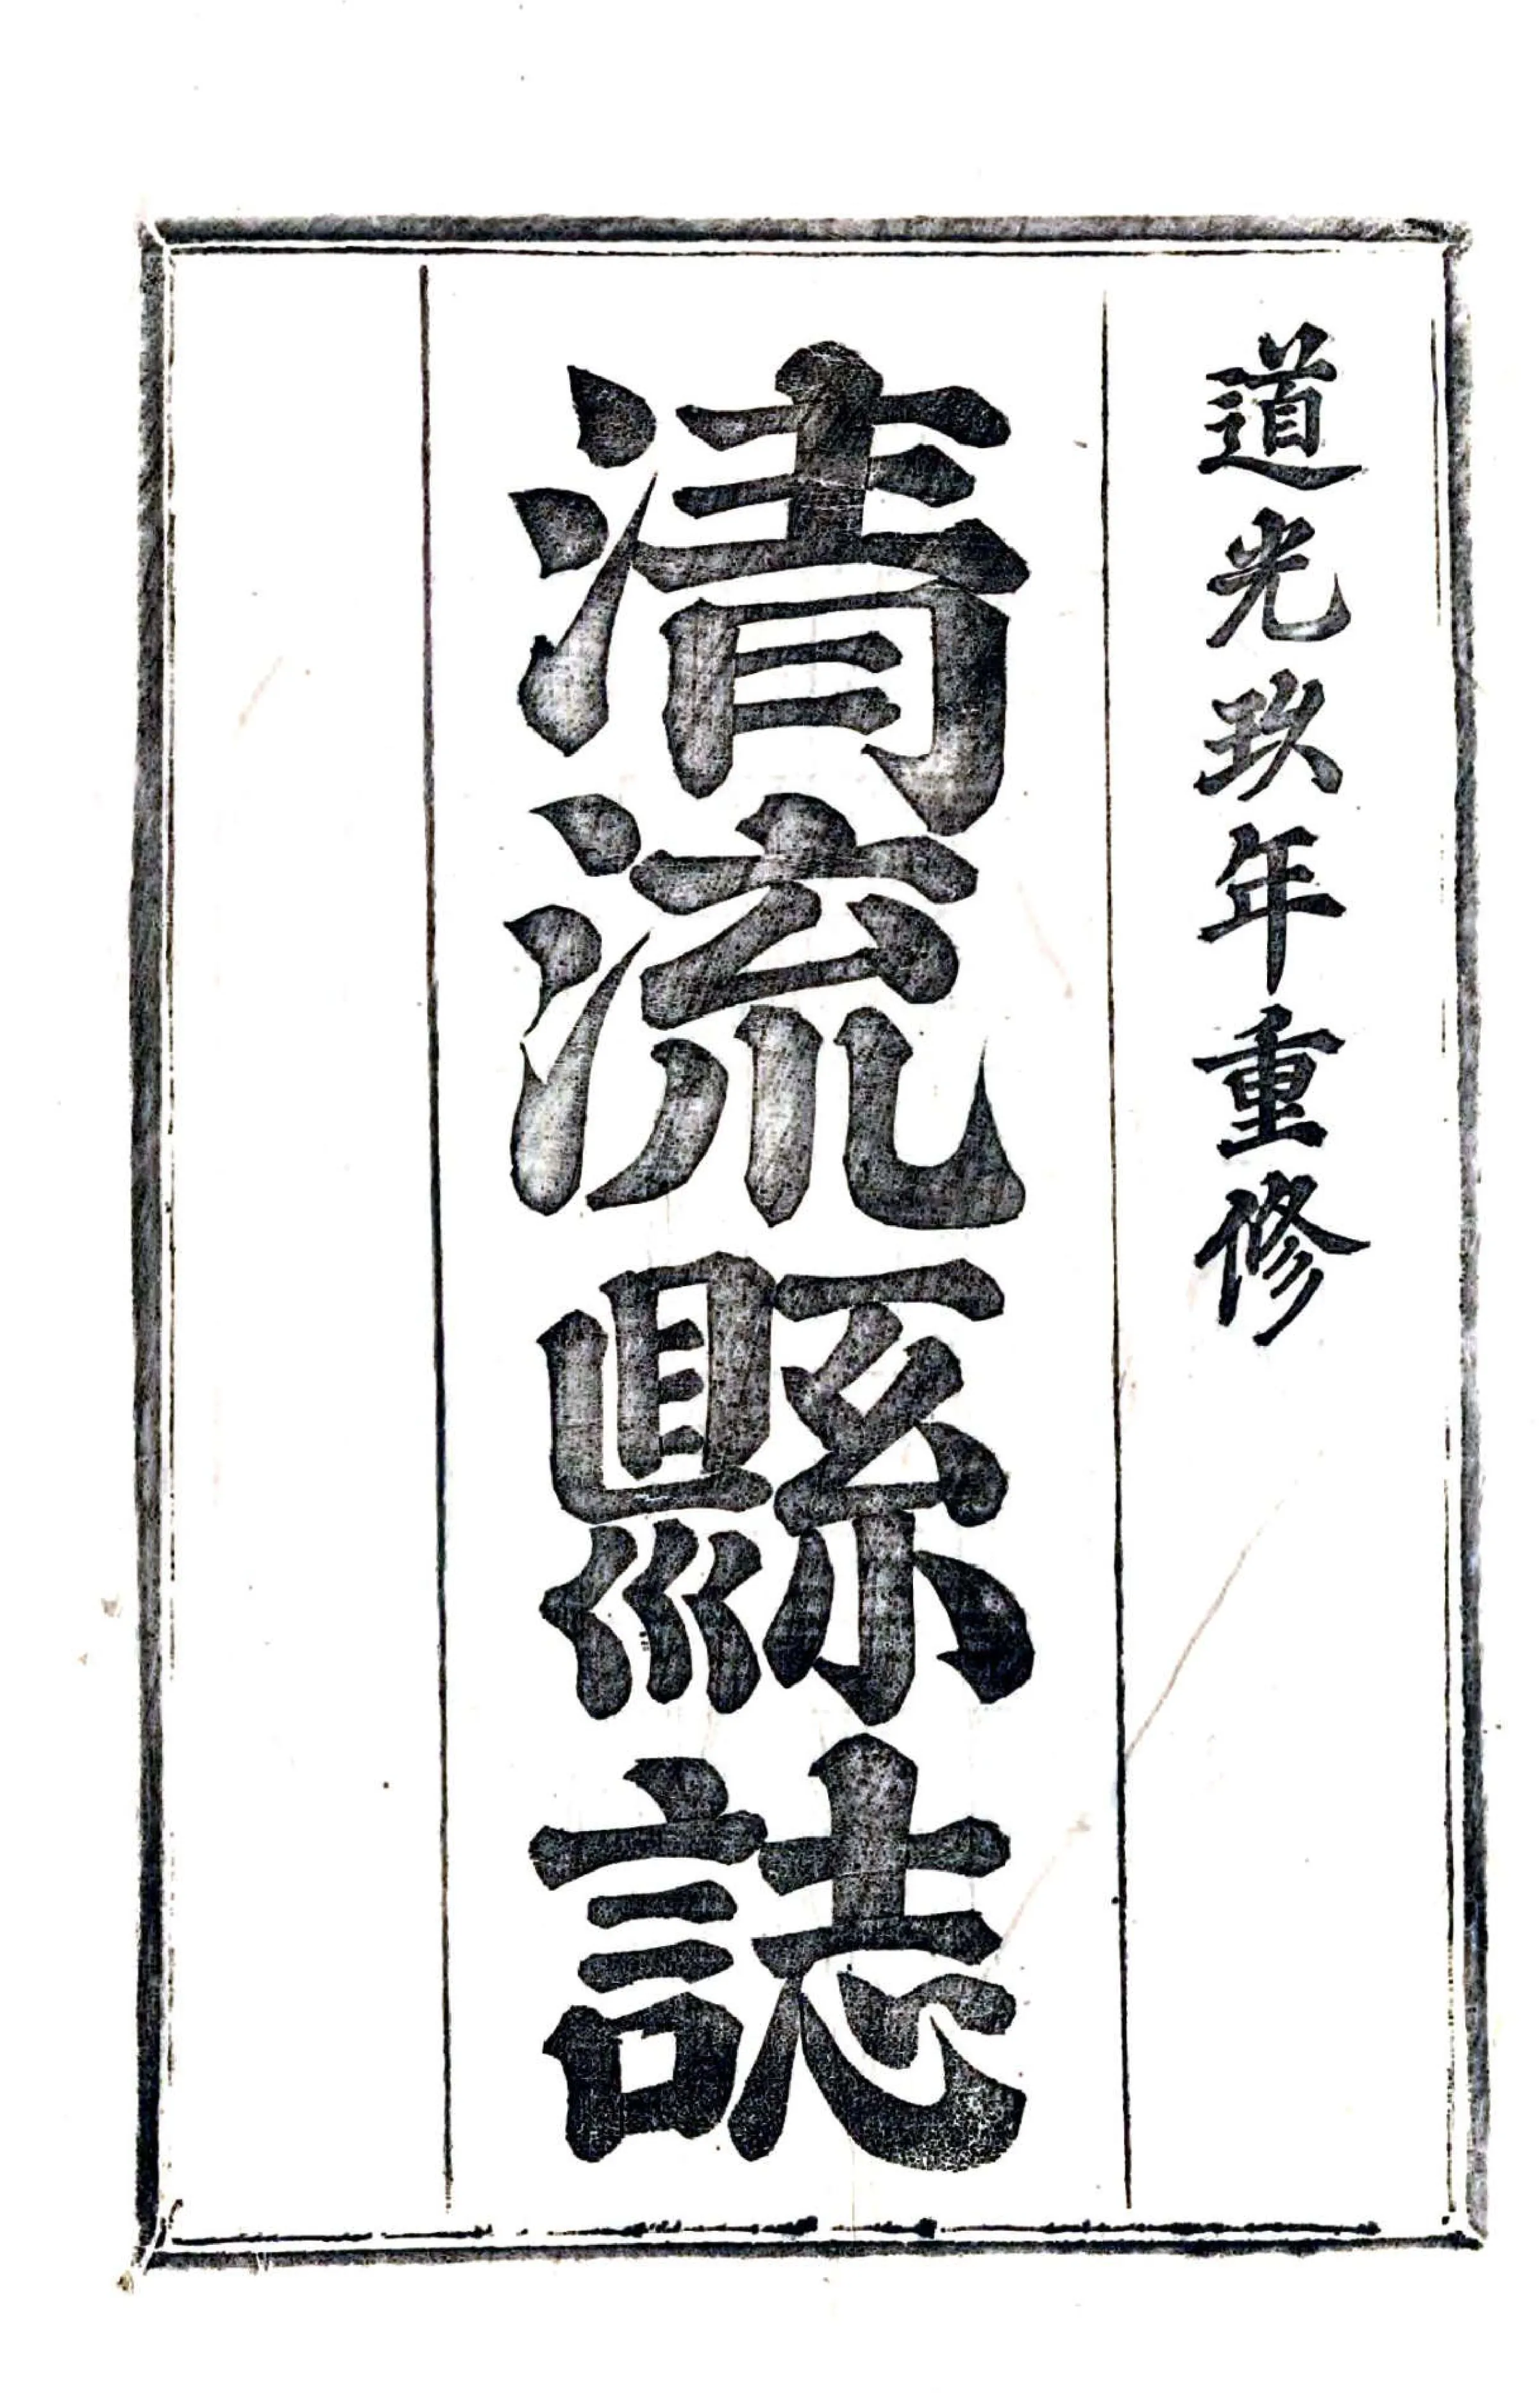 道光玖年重修
清流縣誌